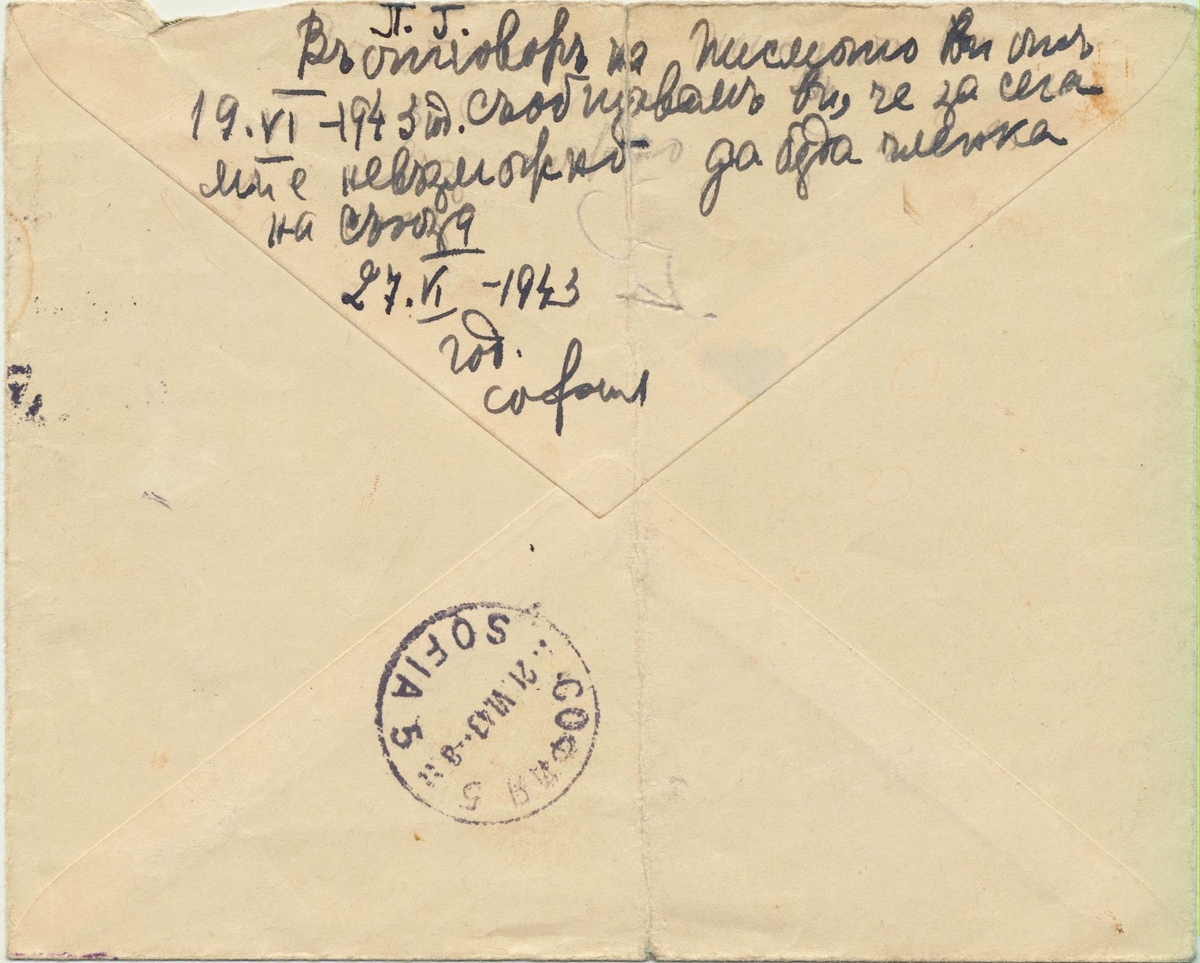 П. Г.
Въ отговоръ на писмото Ви отъ
19.VI–1943 год. съобщавамъ Ви, че за сега
ми е невъзможно да бѫда членка
на съюза
27.VI–1943
год.
София
SOFIA 5
21.VI.43.-8
СОФИЯ 5